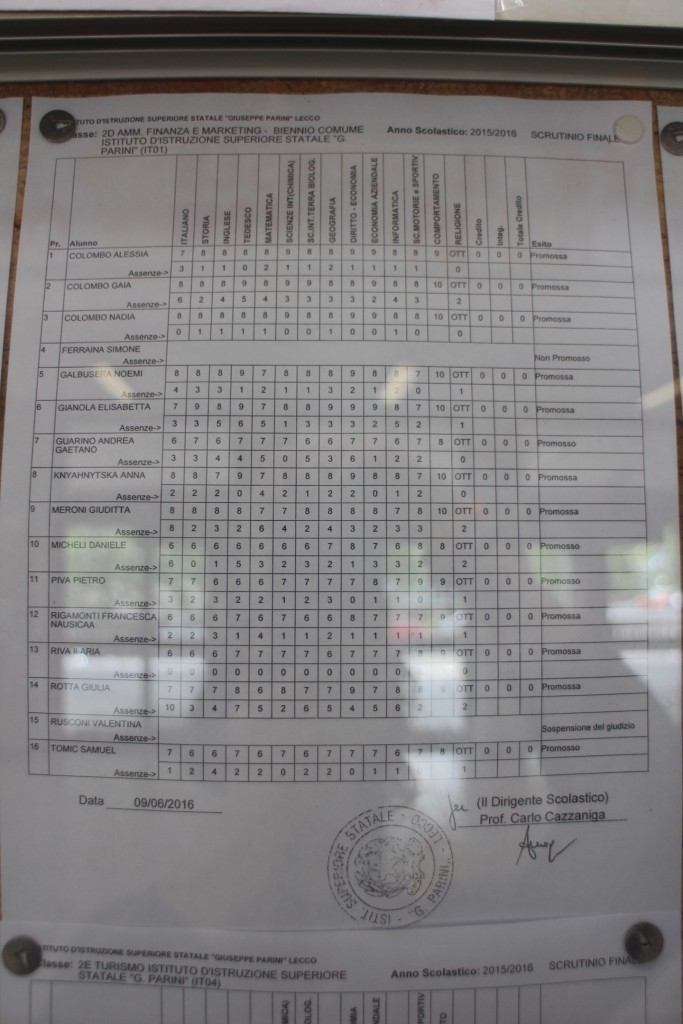 TUTO D'ISTRUZIONE SUPERIORE STATALE "GIUSEPPE PARINI" LECCO
asse: 2D AMM. FINANZA E MARKETING - BIENNIO COMUME Anno Scolastico: 2015/2016 SCRUTINIO FINALE
ISTITUTO D'ISTRUZIONE SUPERIORE STATALE "G.
PARINI" (IT01)
Pr. Alunno ITALIANO STORIA INGLESE TEDESCO MATEMATICA SCIENZE INT(CHIMICA) SC.INT.TERRA BIOLOG. GEOGRAFIA DIRITTO - ECONOMIA ECONOMIA AZIENDALE INFORMATICA SC.MOTORIE e SPORTIV COMPORTAMENTO RELIGIONE Credito Integ. Totale Credito Esito
1 COLOMBO ALESSIA 7 8 8 8 8 9 8 8 9 9 8 8 9 OTT 0 0 0 Promossa
Assenze-> 3 1 1 0 2 1 1 2 1 1 1 1 0
2 COLOMBO GAIA 8 8 8 9 8 9 9 8 8 9 8 8 10 OTT 0 0 0 Promossa
Assenze-> 6 2 4 5 4 3 3 3 3 2 4 3 2
3 COLOMBO NADIA 8 8 8 8 8 9 8 8 9 9 8 8 10 OTT 0 0 0 Promossa
Assenze-> 0 1 1 1 1 0 0 1 0 0 1 0 0
4 FERRAINA SIMONE Non Promosso
Assenze->
5 GALBUSERA NOEMI 8 8 8 9 7 8 8 8 9 8 8 7 10 OTT 0 0 0 Promossa
Assenze-> 4 3 3 1 2 1 1 3 2 1 2 0 1
6 GIANOLA ELISABETTA 7 9 8 9 7 8 8 9 9 9 8 7 10 OTT 0 0 0 Promossa
Assenze-> 3 3 5 6 5 1 3 3 3 2 5 2 1
7 GUARINO ANDREA 6 7 6 7 7 7 6 6 7 7 6 7 8 OTT 0 0 0 Promosso
GAETANO
Assenze-> 3 3 4 4 5 0 5 3 6 1 2 2 0
8 KNYAHNYTSKA ANNA 8 8 7 9 7 8 8 8 9 8 8 7 10 OTT 0 0 0 Promossa
Assenze-> 2 2 2 0 4 2 1 2 2 0 1 2 0
9 MERONI GIUDITTA 8 8 8 8 7 7 8 8 8 8 7 8 10 OTT 0 0 0 Promossa
Assenze-> 8 2 3 2 6 4 2 4 3 2 3 3 2
10 MICHELI DANIELE 6 6 6 6 6 6 6 7 8 7 6 8 8 OTT 0 0 0 Promosso
Assenze-> 6 0 1 5 3 2 3 2 1 3 3 2 2
11 PIVA PIETRO 7 7 6 6 6 7 7 7 7 8 7 9 9 OTT 0 0 0 Promosso
Assenze-> 3 2 3 2 2 1 2 3 0 1 1 0 1
12 RIGAMONTI FRANCESCA 6 6 6 7 6 7 6 6 8 7 7 7 9 OTT 0 0 0 Promossa
NAUSICAA
Assenze-> 2 2 3 1 4 1 1 2 1 1 1 1 1
13 RIVA ILARIA 6 6 6 7 7 7 7 6 7 7 7 8 9 OTT 0 0 0 Promossa
Assenze-> 0 0 0 0 0 0 0 0 0 0 0 0 0
14 ROTTA GIULIA 7 7 7 8 6 8 7 7 9 7 8 OTT 0 0 0 Promossa
Assenze-> 10 3 4 7 5 2 6 5 4 5 6 2 2
15 RUSCONI VALENTINA Sospensione del giudizio
Assenze->
16 TOMIC SAMUEL 7 6 6 7 6 7 6 7 7 7 6 7 8 OTT 0 0 0 Promosso
Assenze-> 1 2 4 2 2 0 2 2 0 1 1 1
Data 09/06/2016
(Il Dirigente Scolastico)
Prof. Carlo Cazzaniga
ISTIT. SUPERIORE STATALE - "G. PARINI" - LECCO
TITUTO D'ISTRUZIONE SUPERIORE STATALE "GIUSEPPE PARINI" LECCO
lasse: 2E TURISMO ISTITUTO D'ISTRUZIONE SUPERIORE Anno Scolastico: 2015/2016 SCRUTINIO FINA
STATALE "G. PARINI" (IT04)